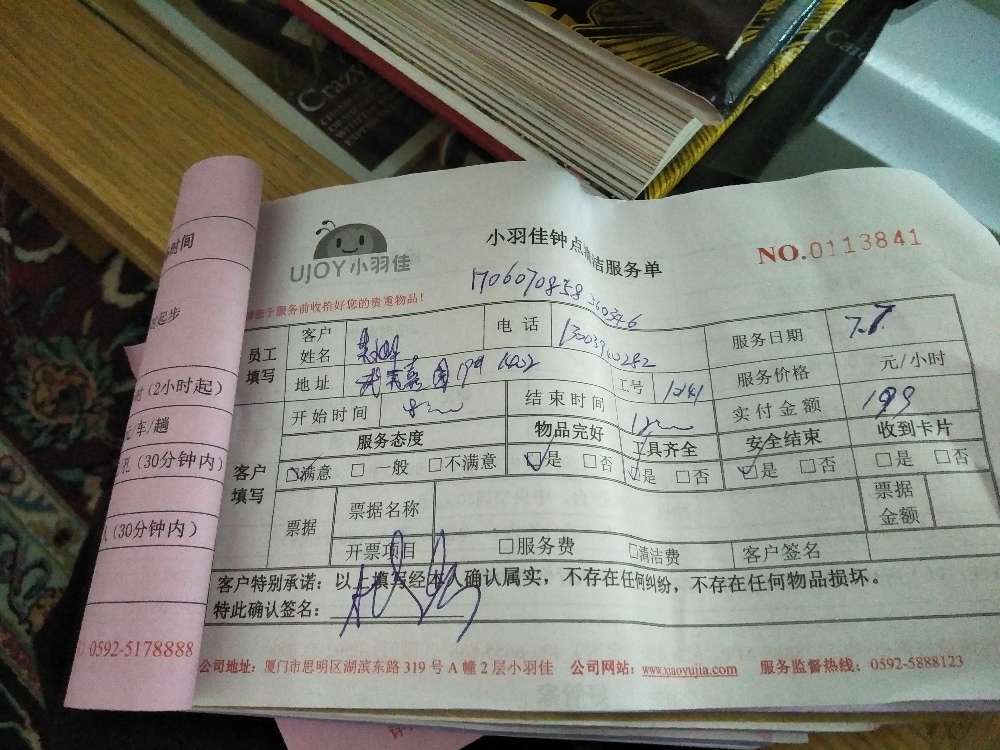 Crazy
小羽佳钟点清洁服务单
NO.0113841
UJOY小羽佳
于服务前收拾好您的贵重物品！
170607085836 0346
员工填写
客户姓名
电话
服务日期 7.7
地址
工号 1241
服务价格 元/小时
开始时间
结束时间
实付金额 199
服务态度 物品完好 工具齐全 安全结束 收到卡片
客户填写
☑满意 □一般 □不满意 ☑是 □否 ☑是 □否 ☑是 □否 □是 □否
票据
票据名称
票据金额
开票项目 □服务费 □清洁费 客户签名
客户特别承诺：以上填写经本人确认属实，不存在任何纠纷，不存在任何物品损坏。
特此确认签名：
公司地址：厦门市思明区湖滨东路 319 号 A 幢 2 层小羽佳 公司网站：www.xiaoyujia.com 服务监督热线：0592-5888123
时间
起步
(2小时起)
车/趟
(30分钟内)
(30分钟内)
0592-5178888